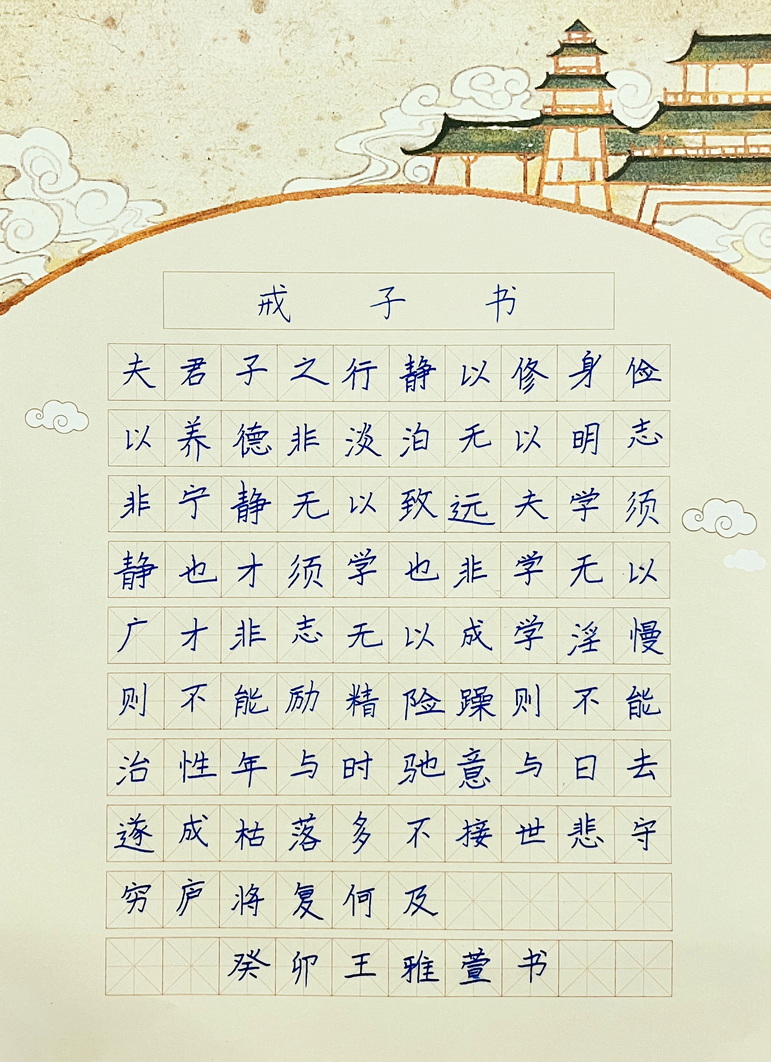 戒子书
夫君子之行静以修身俭
以养德非淡泊无以明志
非宁静无以致远夫学须
静也才须学也非学无以
广才非志无以成学淫慢
则不能励精险躁则不能
治性年与时驰意与日去
遂成枯落多不接世悲守
穷庐将复何及
癸卯王雅萱书